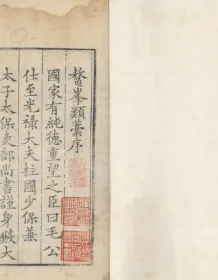 鰲峯類藁序
國家有純德重望之臣曰毛公
仕至光禄大夫柱國少保兼
太子太保吏部尚書謹身殿大